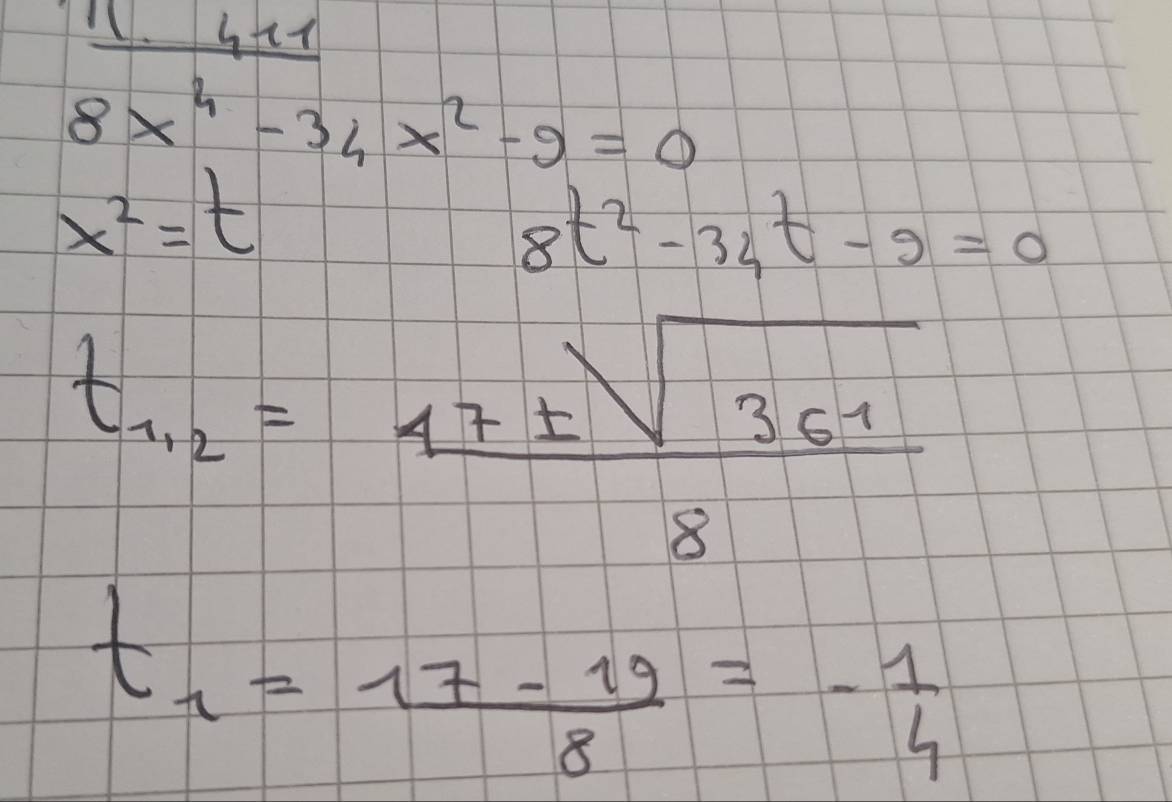 411
8x⁴ - 34x² - 9 = 0
x² = t 8t² - 34t - 9 = 0
t₁,₂ = (17 ± √361) / 8
t₁ = (17 - 19) / 8 = - 1/4